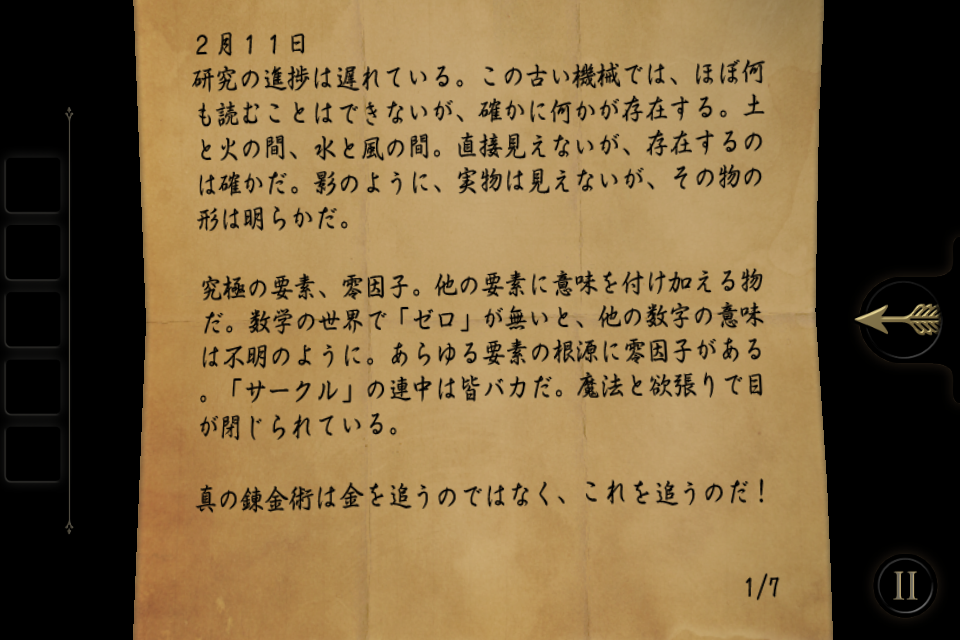 ２月１１日
研究の進捗は遅れている。この古い機械では、ほぼ何
も読むことはできないが、確かに何かが存在する。土
と火の間、水と風の間。直接見えないが、存在するの
は確かだ。影のように、実物は見えないが、その物の
形は明らかだ。
究極の要素、零因子。他の要素に意味を付け加える物
だ。数学の世界で「ゼロ」が無いと、他の数字の意味
は不明のように。あらゆる要素の根源に零因子がある
。「サークル」の連中は皆バカだ。魔法と欲張りで目
が閉じられている。
真の錬金術は金を追うのではなく、これを追うのだ！
1/7
II